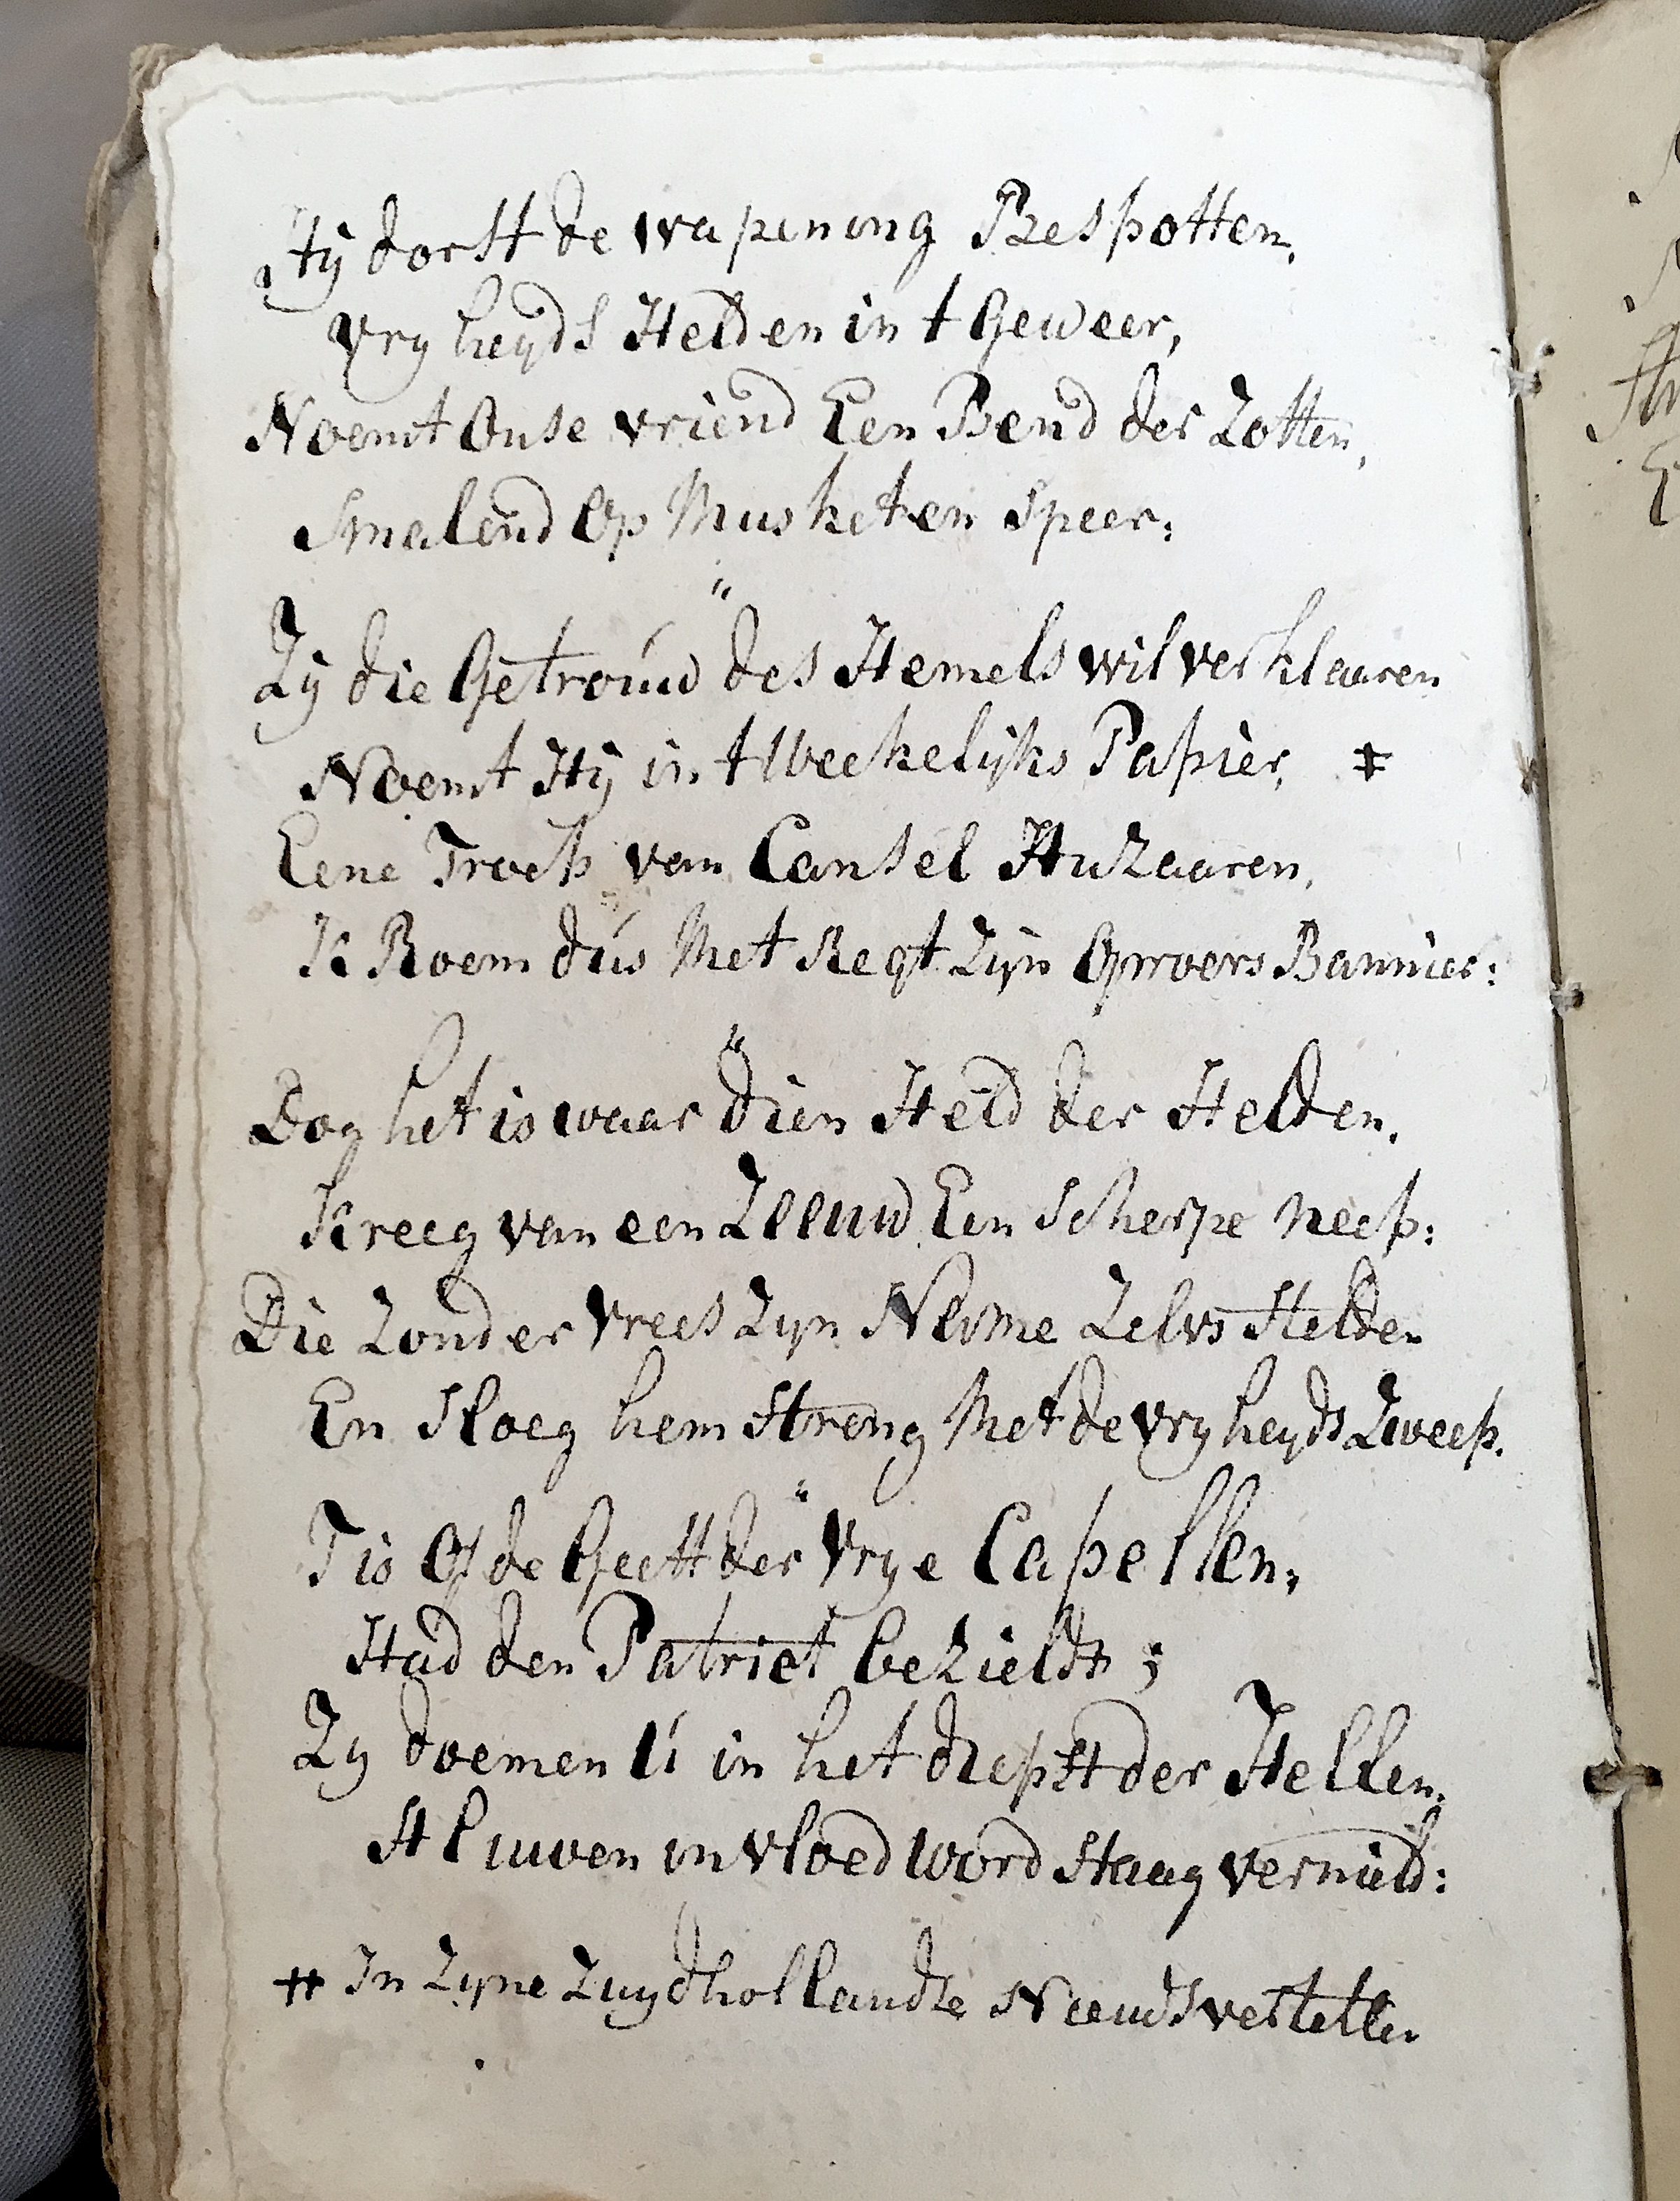 Hij dorst de wapening Bespotten,
Vryheyds Helden in t Geweer,
Noemt Onse vriend Een Bend der Zotten,
Smalend Op Musket en Speer;
"
Zij die Getrouw des Hemels wil verklaaren
Noemt Hij in t Weekelijks Papier, ‡
Eene Troep van Cansel Huzaaren,
K Roem dus Met Regt Zijn Oproers Bannier:
"
Dog het is waar dien Held der Helden,
Kreeg van een Zeeuw Een Scherpe neep:
Die Zonder Vrees Zyn Name Zelvs Stelden
En Sloeg hem Streng Met de Vryheyds Zweep.
"
T is Of de Geest der Vrye Capellen,
Had den Patriot bezield ;
Zy doemen U in het diepst der Hellen,
H Euwen invloed word Staag vernield:
‡ In Zyne Zuydhollandse Nieuws verteller